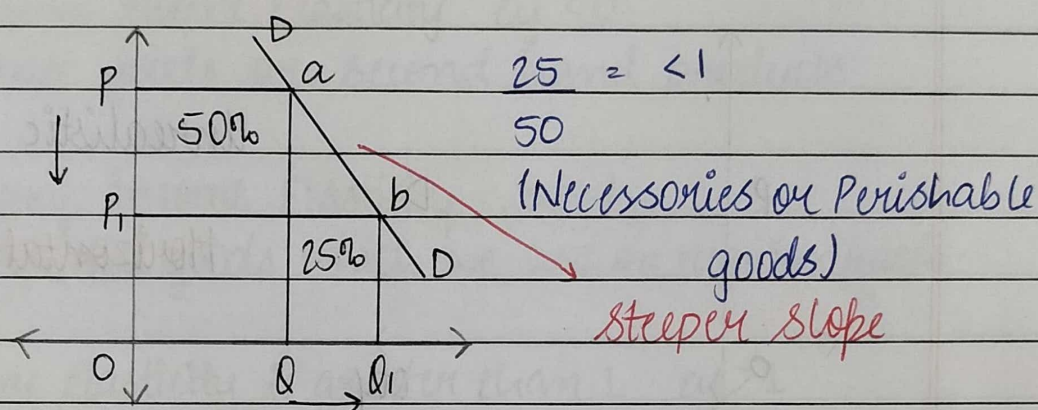 D
P a 25 = <1
50% 50
P1 b (Necessories or Perishable
25% D goods)
steeper slope
O Q Q1